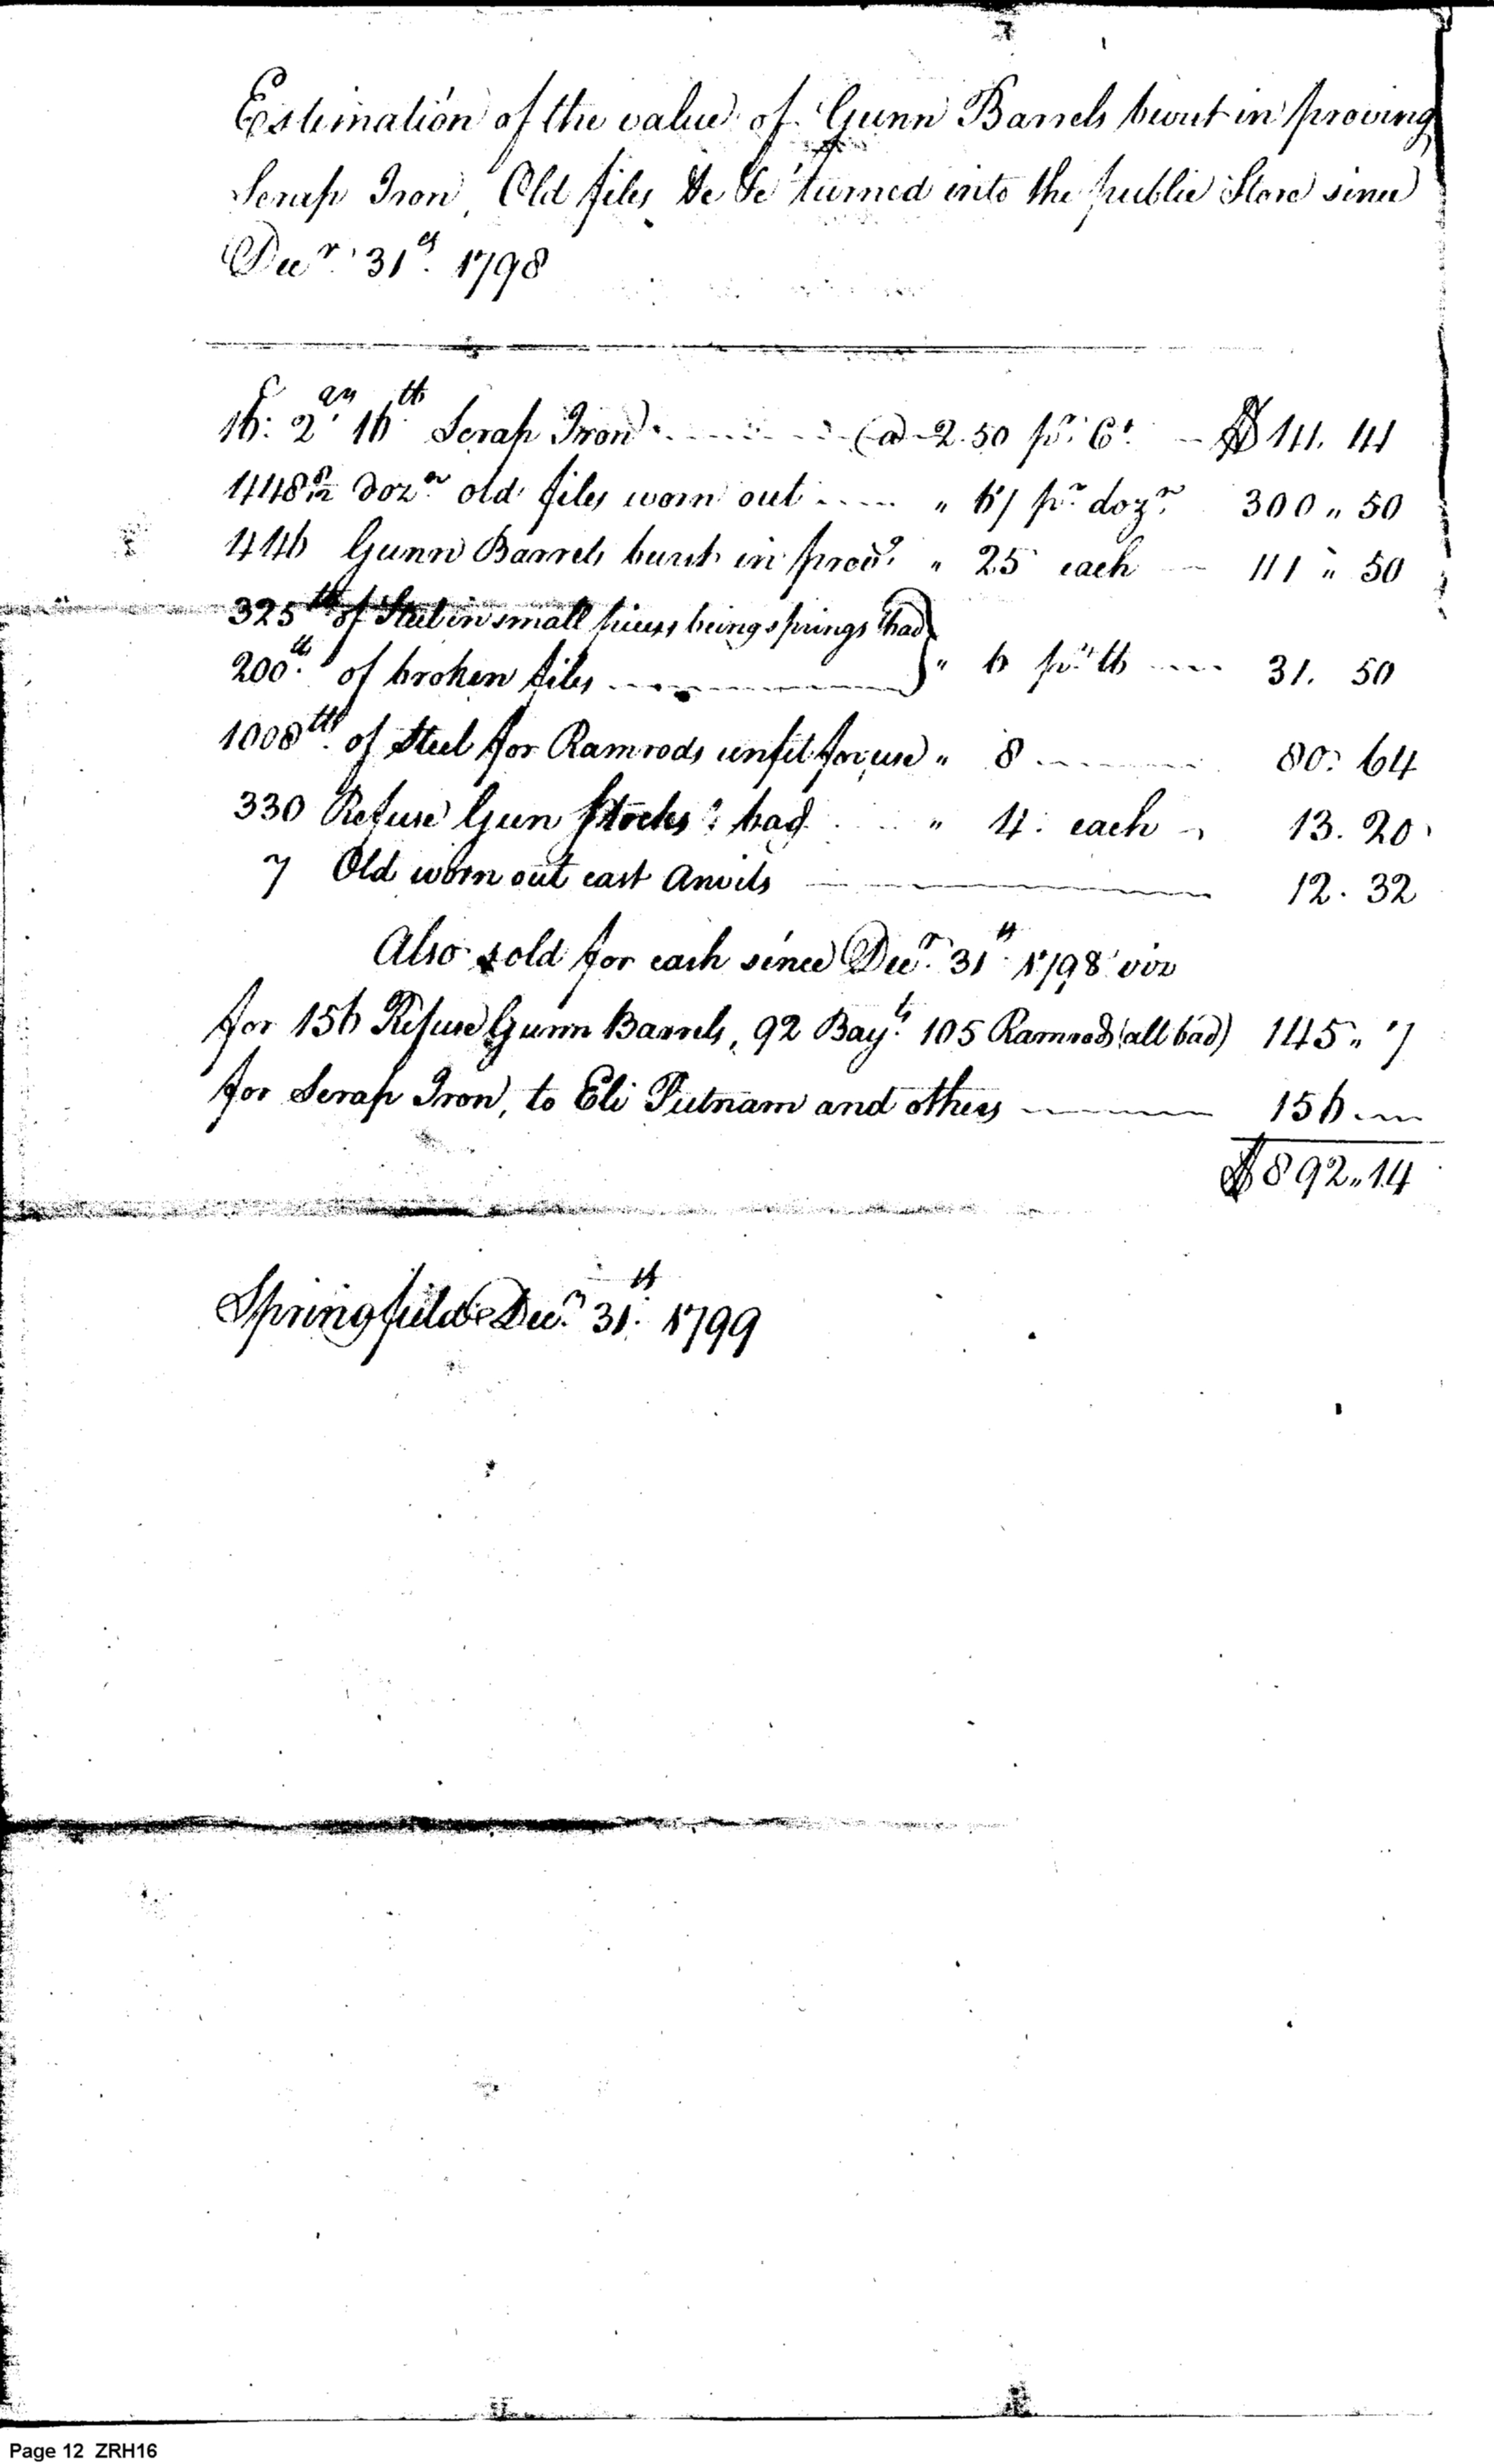 Estimation of the value of Gunn Barrels burst in proving
Scrap Iron, Old files &c &c turned into the public Store since
Decr. 31st. 1798
16C. 2qr. 16lb. Scrap Iron @ 2.50 pr. Ct. $ 41. 41
448 6/12 dozn old files worn out " 67 pr dozn. 300 " 50
446 Gunn Barrels burst in provg. " 25 each 111 " 50
325lb of Steel in small pieces being springs bad
200lb. of broken files } " 6 pr lb 31. 50
1008lb. of Steel for Ramrods unfit for use " 8 80. 64
330 Refuse Gun Stocks : bad " 4. each 13. 20
7 Old worn out cast Anvils 12. 32
Also sold for cash since Decr. 31st 1798 viz
for 156 Refuse Gunn Barrels, 92 Bayts. 105 Ramrods (all bad) 145 " 7
for Scrap Iron, to Eli Putnam and others 156 "
$ 892 " 14
Springfield Decr. 31st. 1799
Page 12 ZRH16